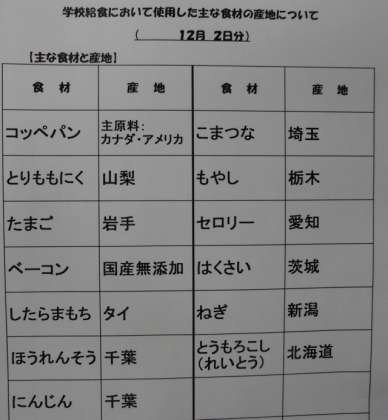 学校給食において使用した主な食材の産地について
(　　12月　2日分)
【主な食材と産地】
食　材　産　地　食　材　産　地
コッペパン　主原料:
カナダ・アメリカ　こまつな　埼玉
とりももにく　山梨　もやし　栃木
たまご　岩手　セロリー　愛知
ベーコン　国産無添加　はくさい　茨城
したらまもち　タイ　ねぎ　新潟
ほうれんそう　千葉　とうもろこし
(れいとう)　北海道
にんじん　千葉